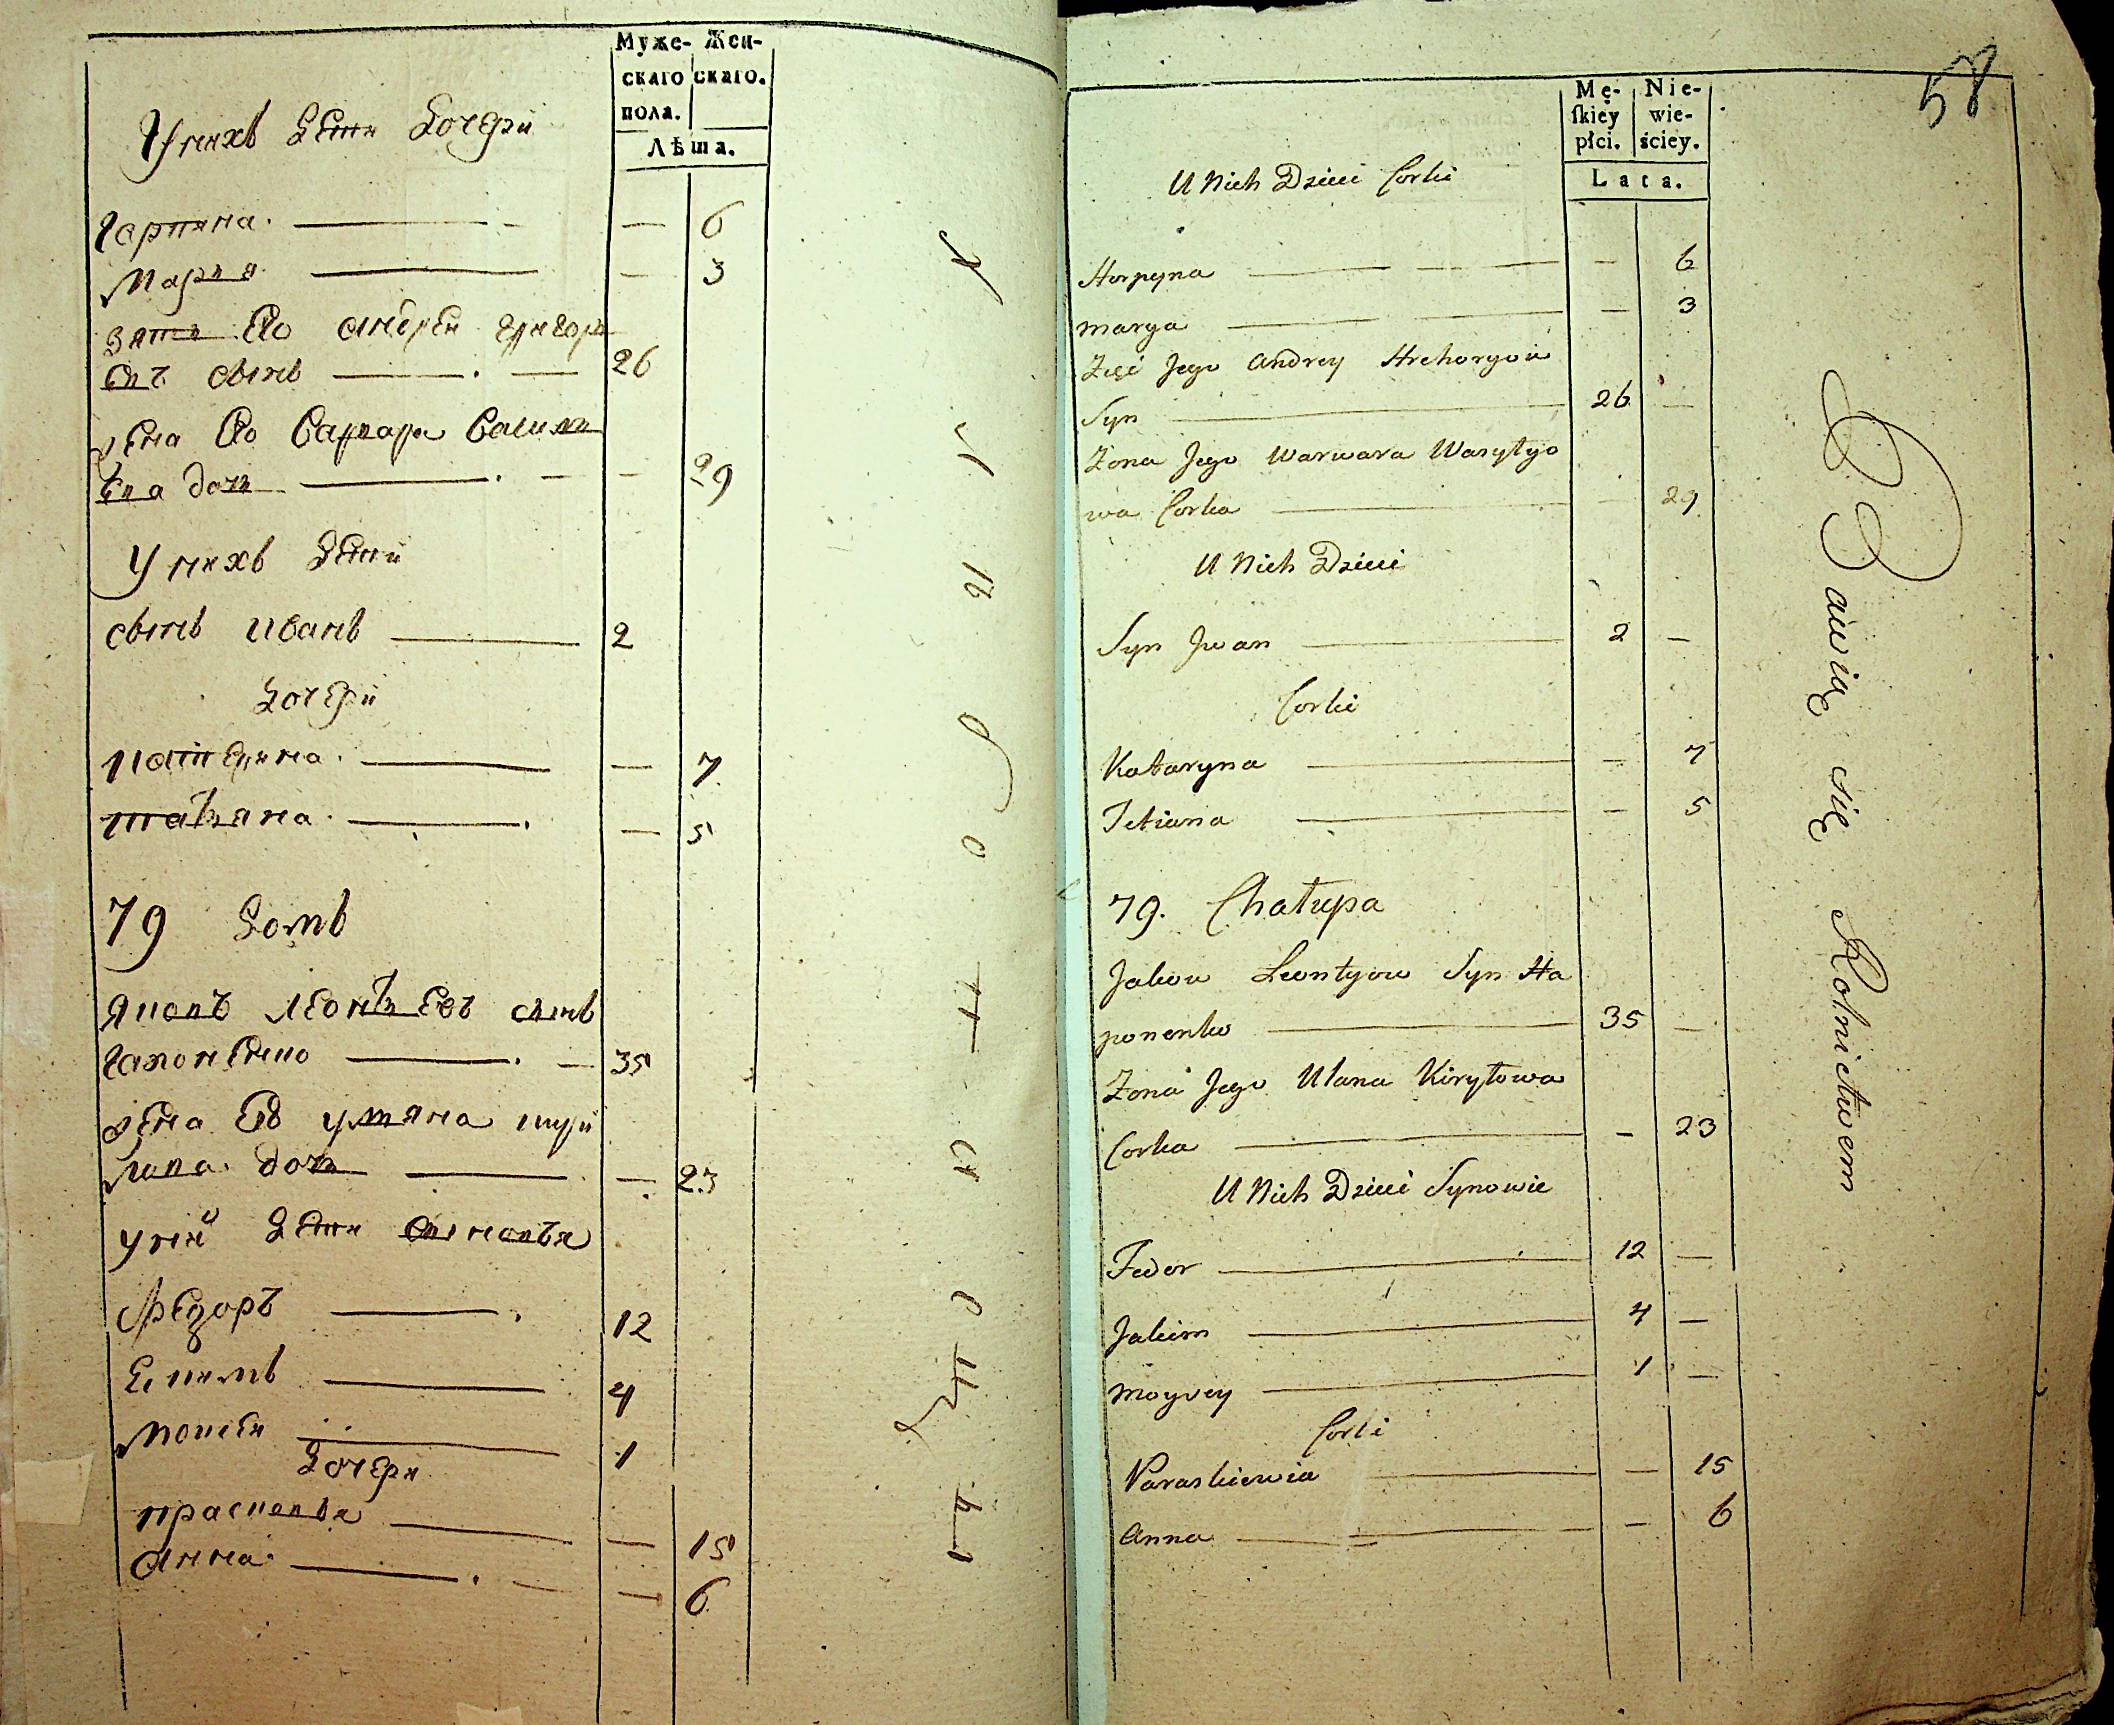 Муже- Жен-
скаго скаго.
пола.
Лѣта.
У нихъ дети дочери
Гарпина — 6
Мария — 3
зять его андрей григорь
евъ сынъ — 26
жена его варвара васили
ева дочь — 29
У нихъ дети
сынъ иванъ 2
дочери
катерина — 7
татьяна — 5
79 домъ
яковъ леонтьевъ сынъ
гапоненко — 35
жена его ульяна кири
лова дочь — 23
у них дети сыновья
Федоръ 12
екимъ 4
мойсей 1
дочери
прасковья — 15
анна — 6
58
Mę- Nie-
ſkiey wie-
płci. ściey.
Lata.
U Nich Dzieci Corki
Horpyna — 6
Marya — 3
Zięć Jego Andrey Hrehoryow
Syn 26 —
Zona Jego Warwara Wasylyo
wa Corka — 29
U Nich Dzieci
Syn Jwan 2 —
Corki
Kataryna — 7
Tetiana — 5
79. Chałupa
Jakow Leontyow Syn Ha
ponenko 35 —
Zona Jego Ulana Kiryłowa
Corka — 23
U Nich Dzieci Synowie
Fedor 12 —
Jakim 4 —
Moysey 1 —
Corki
Paraskiewia — 15
Anna — 6
Bawią się Rolnictwem